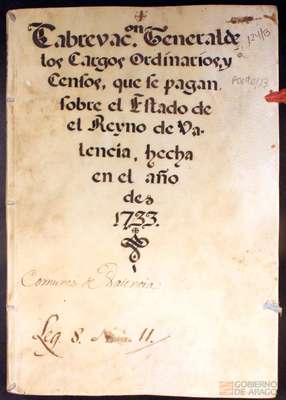 Cabrevac.on General de
los Cargos Ordinarios, y
Censos, que se pagan
sobre el Estado de
el Reyno de Va-
lencia, hecha
en el año
de
1733.
Comunes de Valencia
Leg. 8. Num. 11.
GOBIERNO
DE ARAGON